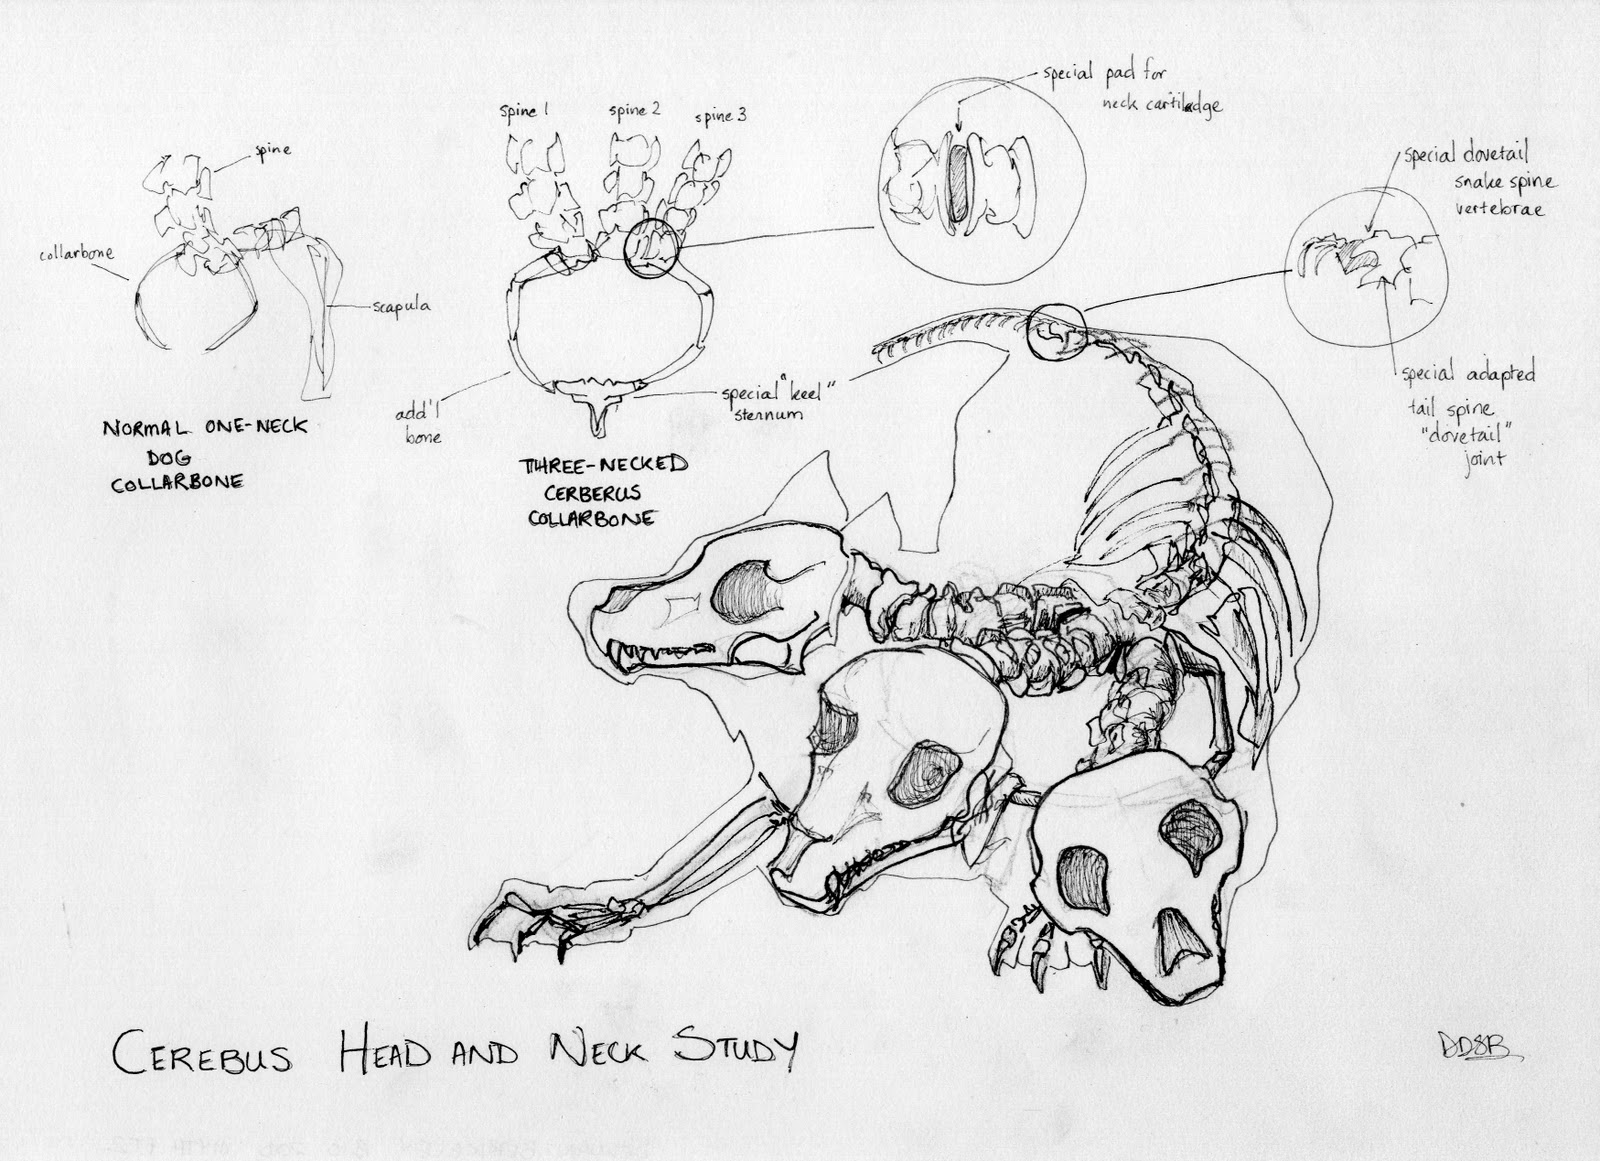 spine
collarbone
scapula
NORMAL ONE-NECK
DOG
COLLARBONE
spine 1
spine 2
spine 3
add'l
bone
special "keel"
sternum
THREE-NECKED
CERBERUS
COLLARBONE
special pad for
neck cartiladge
special dovetail
snake spine
vertebrae
special adapted
tail spine
"dovetail"
joint
CEREBUS HEAD AND NECK STUDY